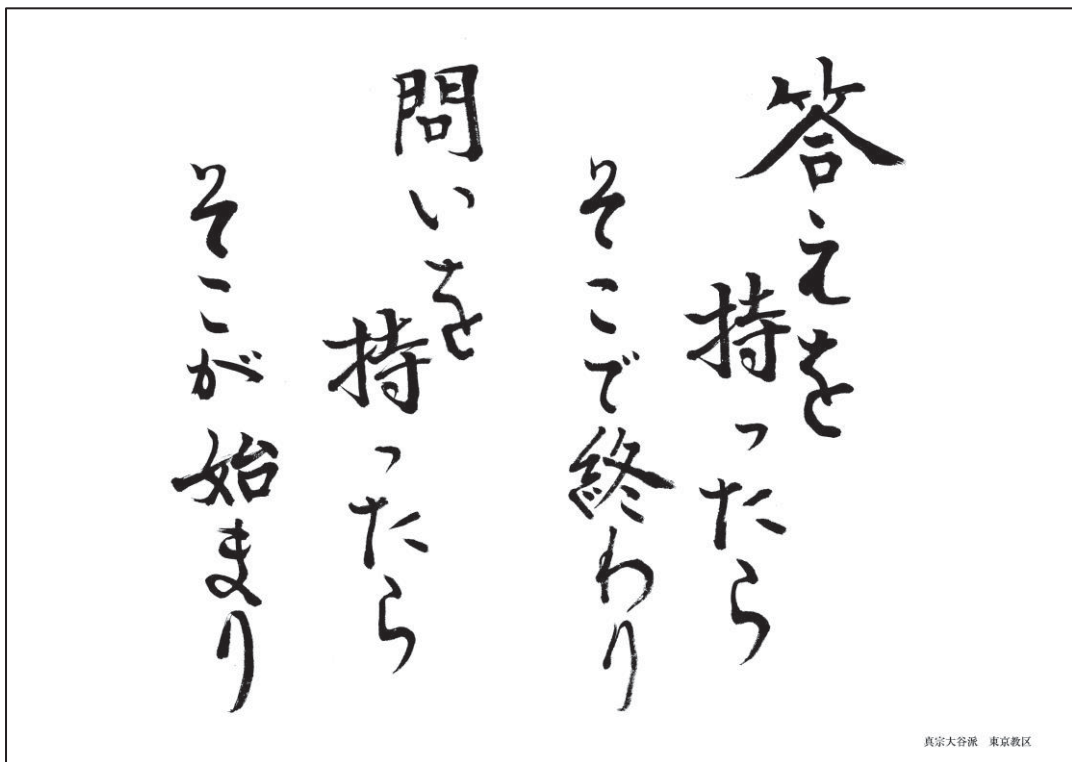 答えを
持ったら
そこで終わり
問いを
持ったら
そこが始まり
真宗大谷派 東京教区